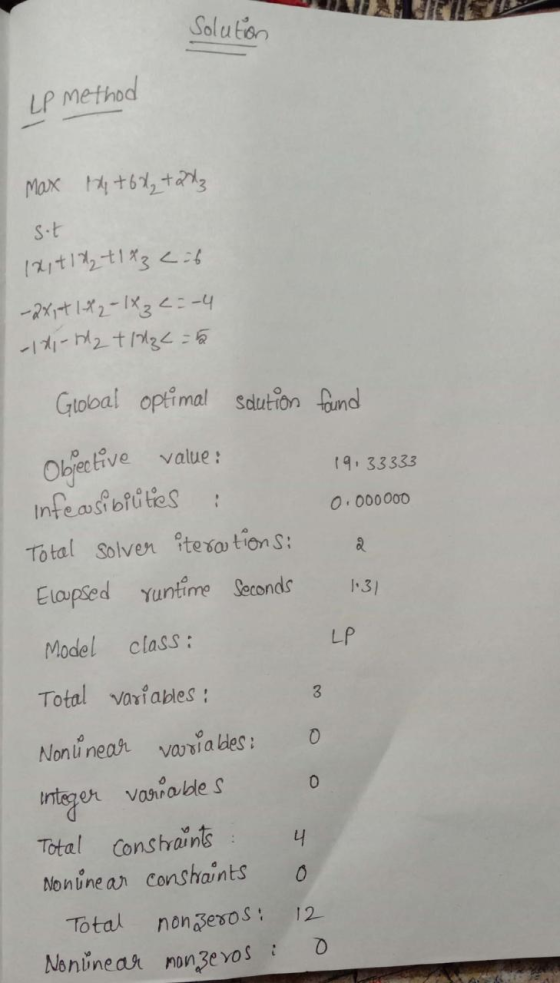 Solution
LP Method
Max 1x₁+6x₂+2x₃
s.t
1x₁+1x₂+1x₃ <=6
-2x₁+1x₂-1x₃ <= -4
-1x₁-1x₂+1x₃ <=5
Global optimal solution found
Objective value: 19.33333
Infeasibilities : 0.000000
Total solver iterations: 2
Elapsed runtime Seconds 1.31
Model class: LP
Total variables: 3
Nonlinear variables: 0
integer variables 0
Total constraints : 4
Nonlinear constraints 0
Total nonzeros: 12
Nonlinear nonzeros : 0